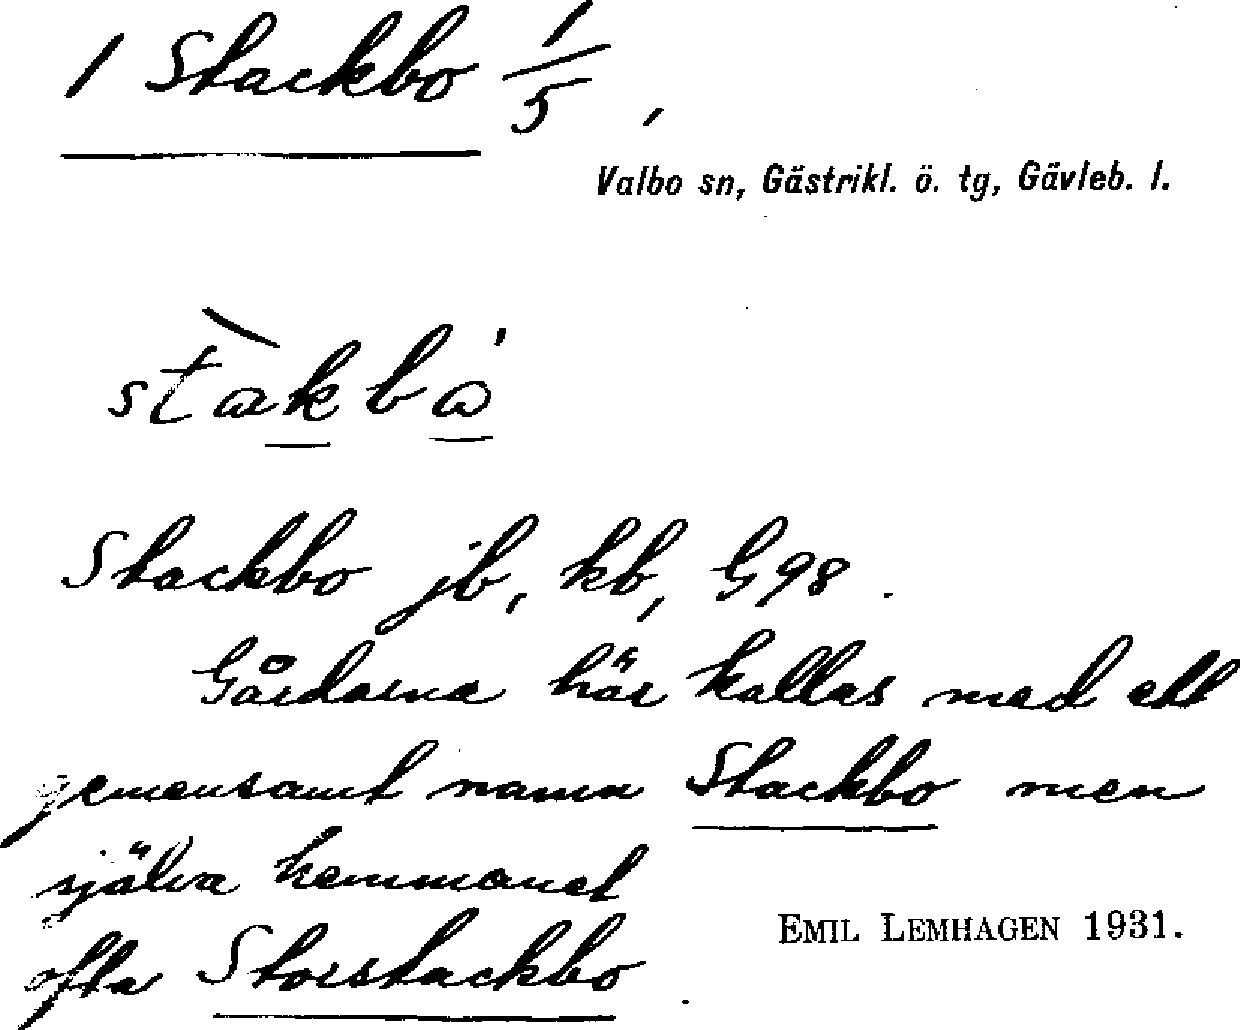 1 Stackbo 1/5,
Valbo sn, Gästrikl. ö. tg, Gävleb. l.
stàkbὼ
Stackbo jb, kb, G98.
Gårdarna här kallas med ett
gemensamt namn Stackbo men
själva hemmanet
ofta Storstackbo.
EMIL LEMHAGEN 1931.